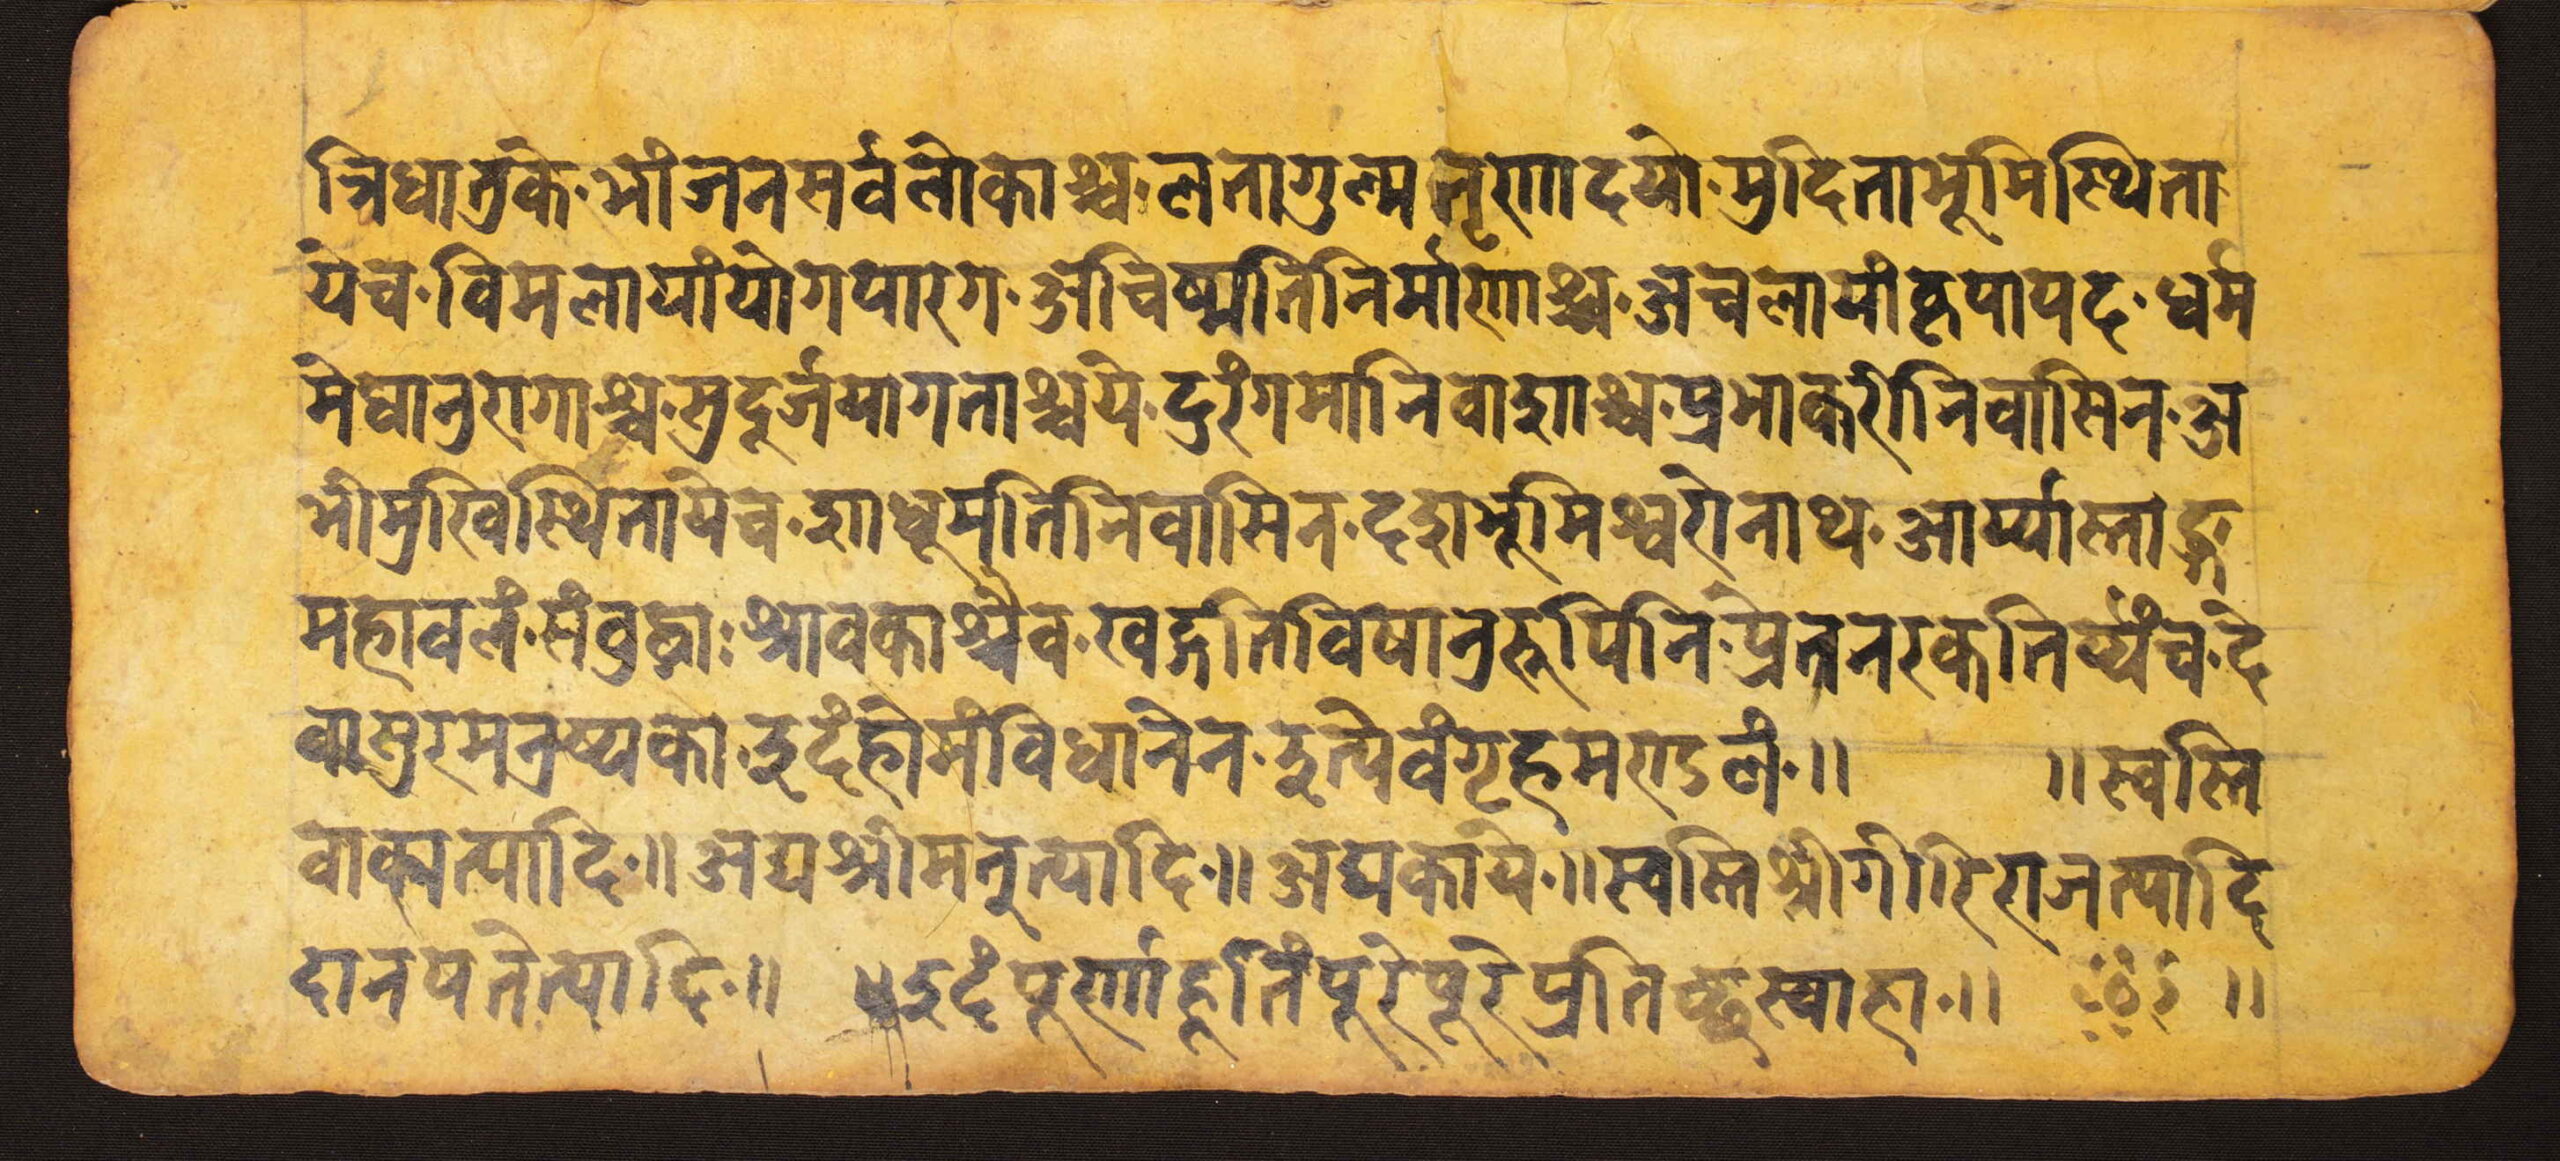 त्रिधातुके·भांजनसर्वलोकाश्च·लतागुल्मतृणादयो·मुदिताभूमिस्थिता
येच·विमलायांयोगपारग·अचिष्मतिनिर्माणाश्च·अचलायांकृपापद·धर्म
मेघानुरागाश्च·सुदूर्जयागताश्चये·दुरंगमानिवाशाश्च·प्रभाकरीनिवासिन·अ
भीमुखिस्थितायेच·शाधूमतिनिवासिन·दशभूमिश्वरोनाथ·आर्य्यास्ताङ्ग
महावलं·संवुद्धाः·श्रावकाश्चैव·खड्गतिविषानुरूपिनि·प्रेतनरकतिर्य्यंच·दे
वासुरमनुष्यका·इदंहोमंविधानेन·इत्येवंगृहमण्डलं·॥ ॥स्वस्ति
वाक्यत्यादि·॥अद्यश्रीमतत्यादि·॥अद्यकाये·॥स्वस्तिश्रीगीरिराजत्यादि
दानपतेत्यादि·॥ ॥इदंपूर्णाहूतिंपूरेपूरेप्रतिच्छस्वाहा·॥ ॥